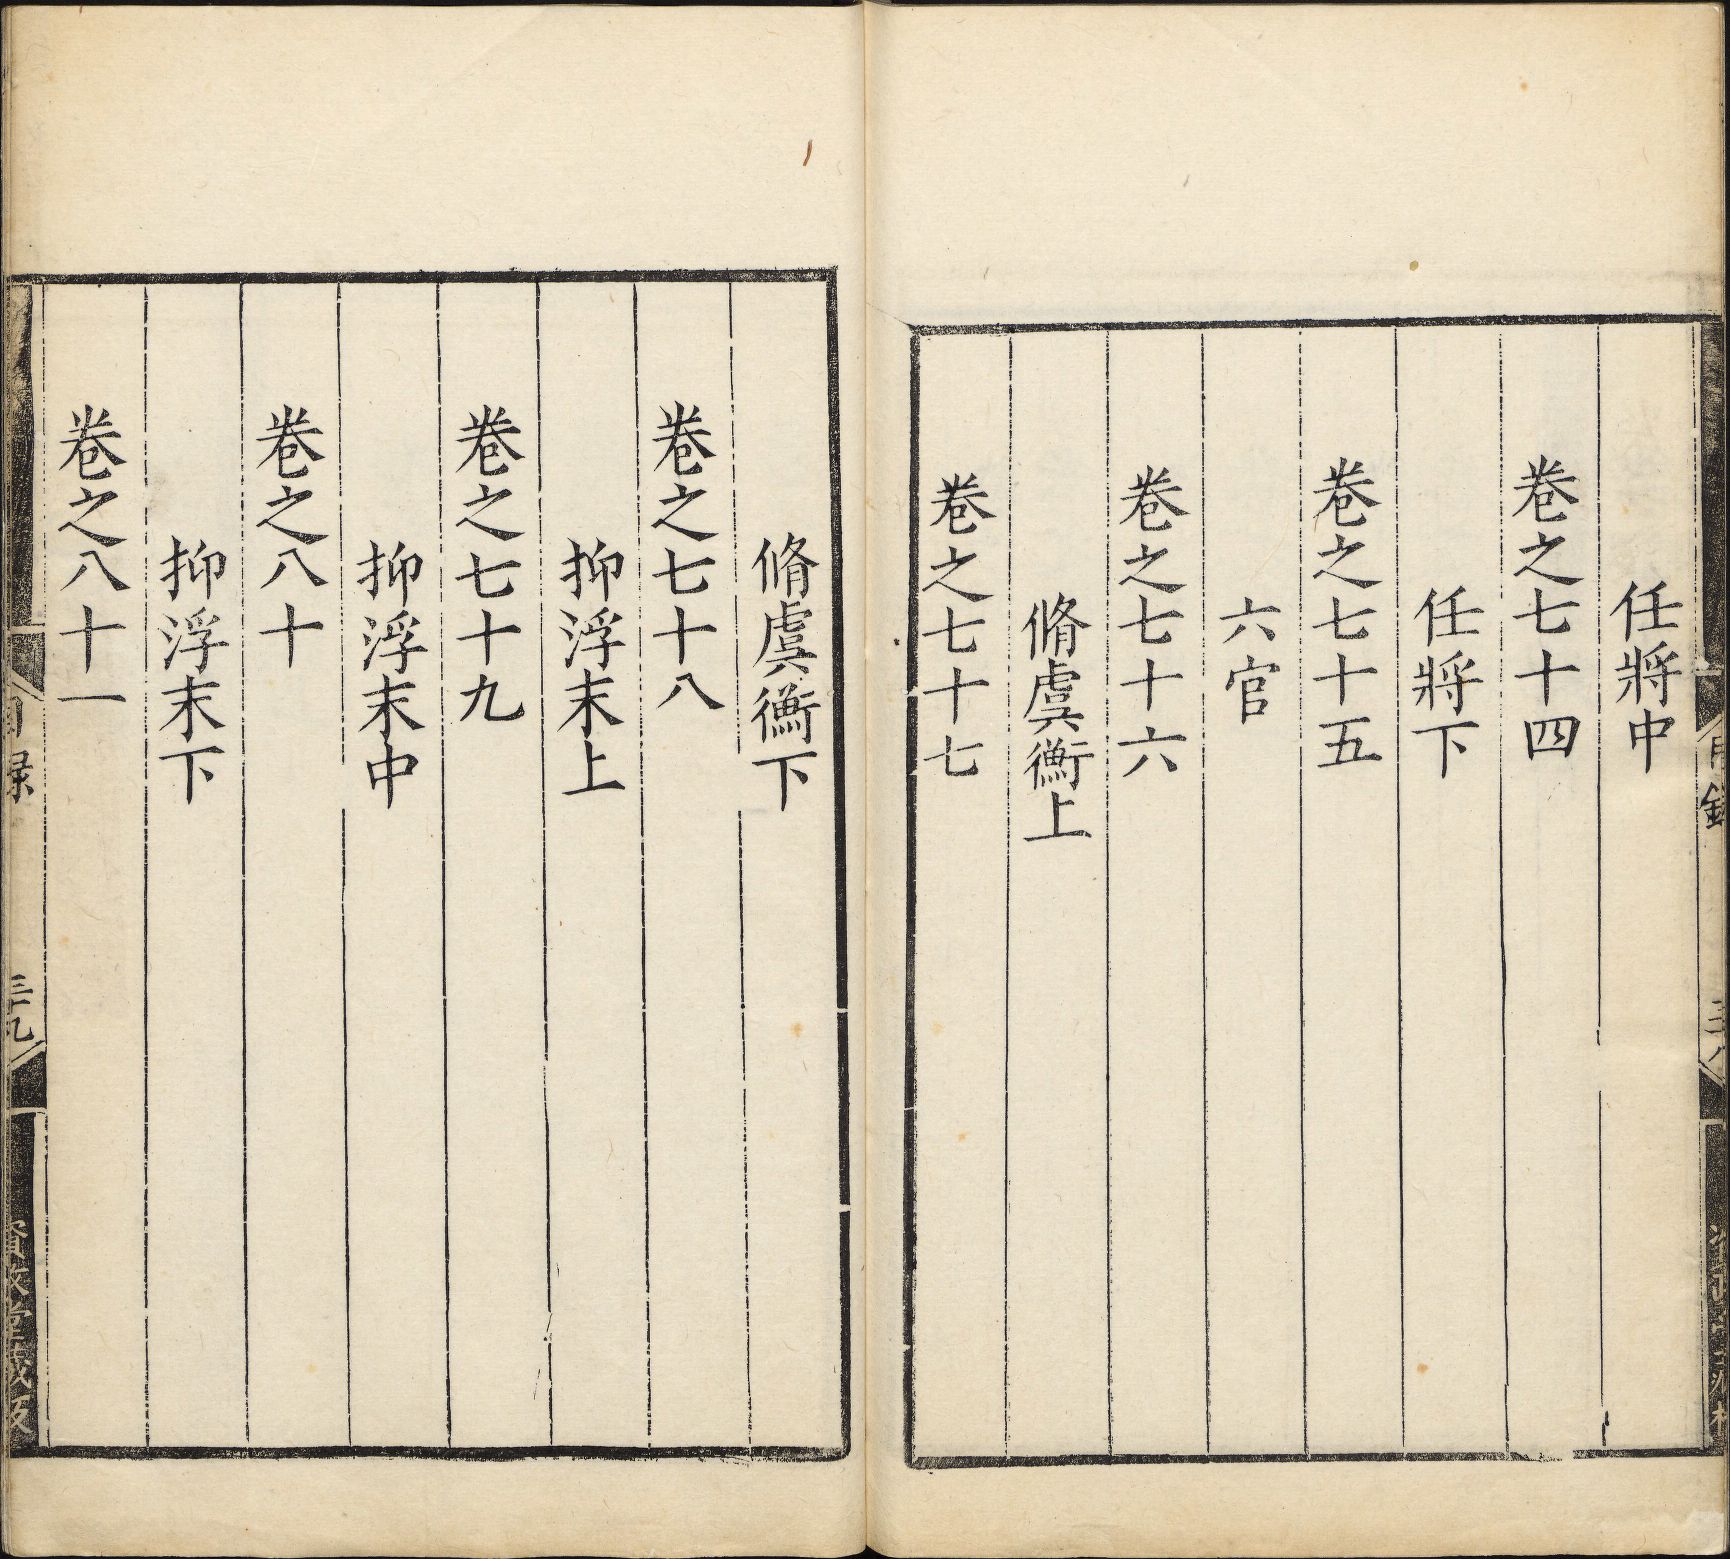 任將中
卷之七十四
任將下
卷之七十五
六官
卷之七十六
脩虞衡上
卷之七十七
脩虞衡下
卷之七十八
抑浮末上
卷之七十九
抑浮末中
卷之八十
抑浮末下
卷之八十一